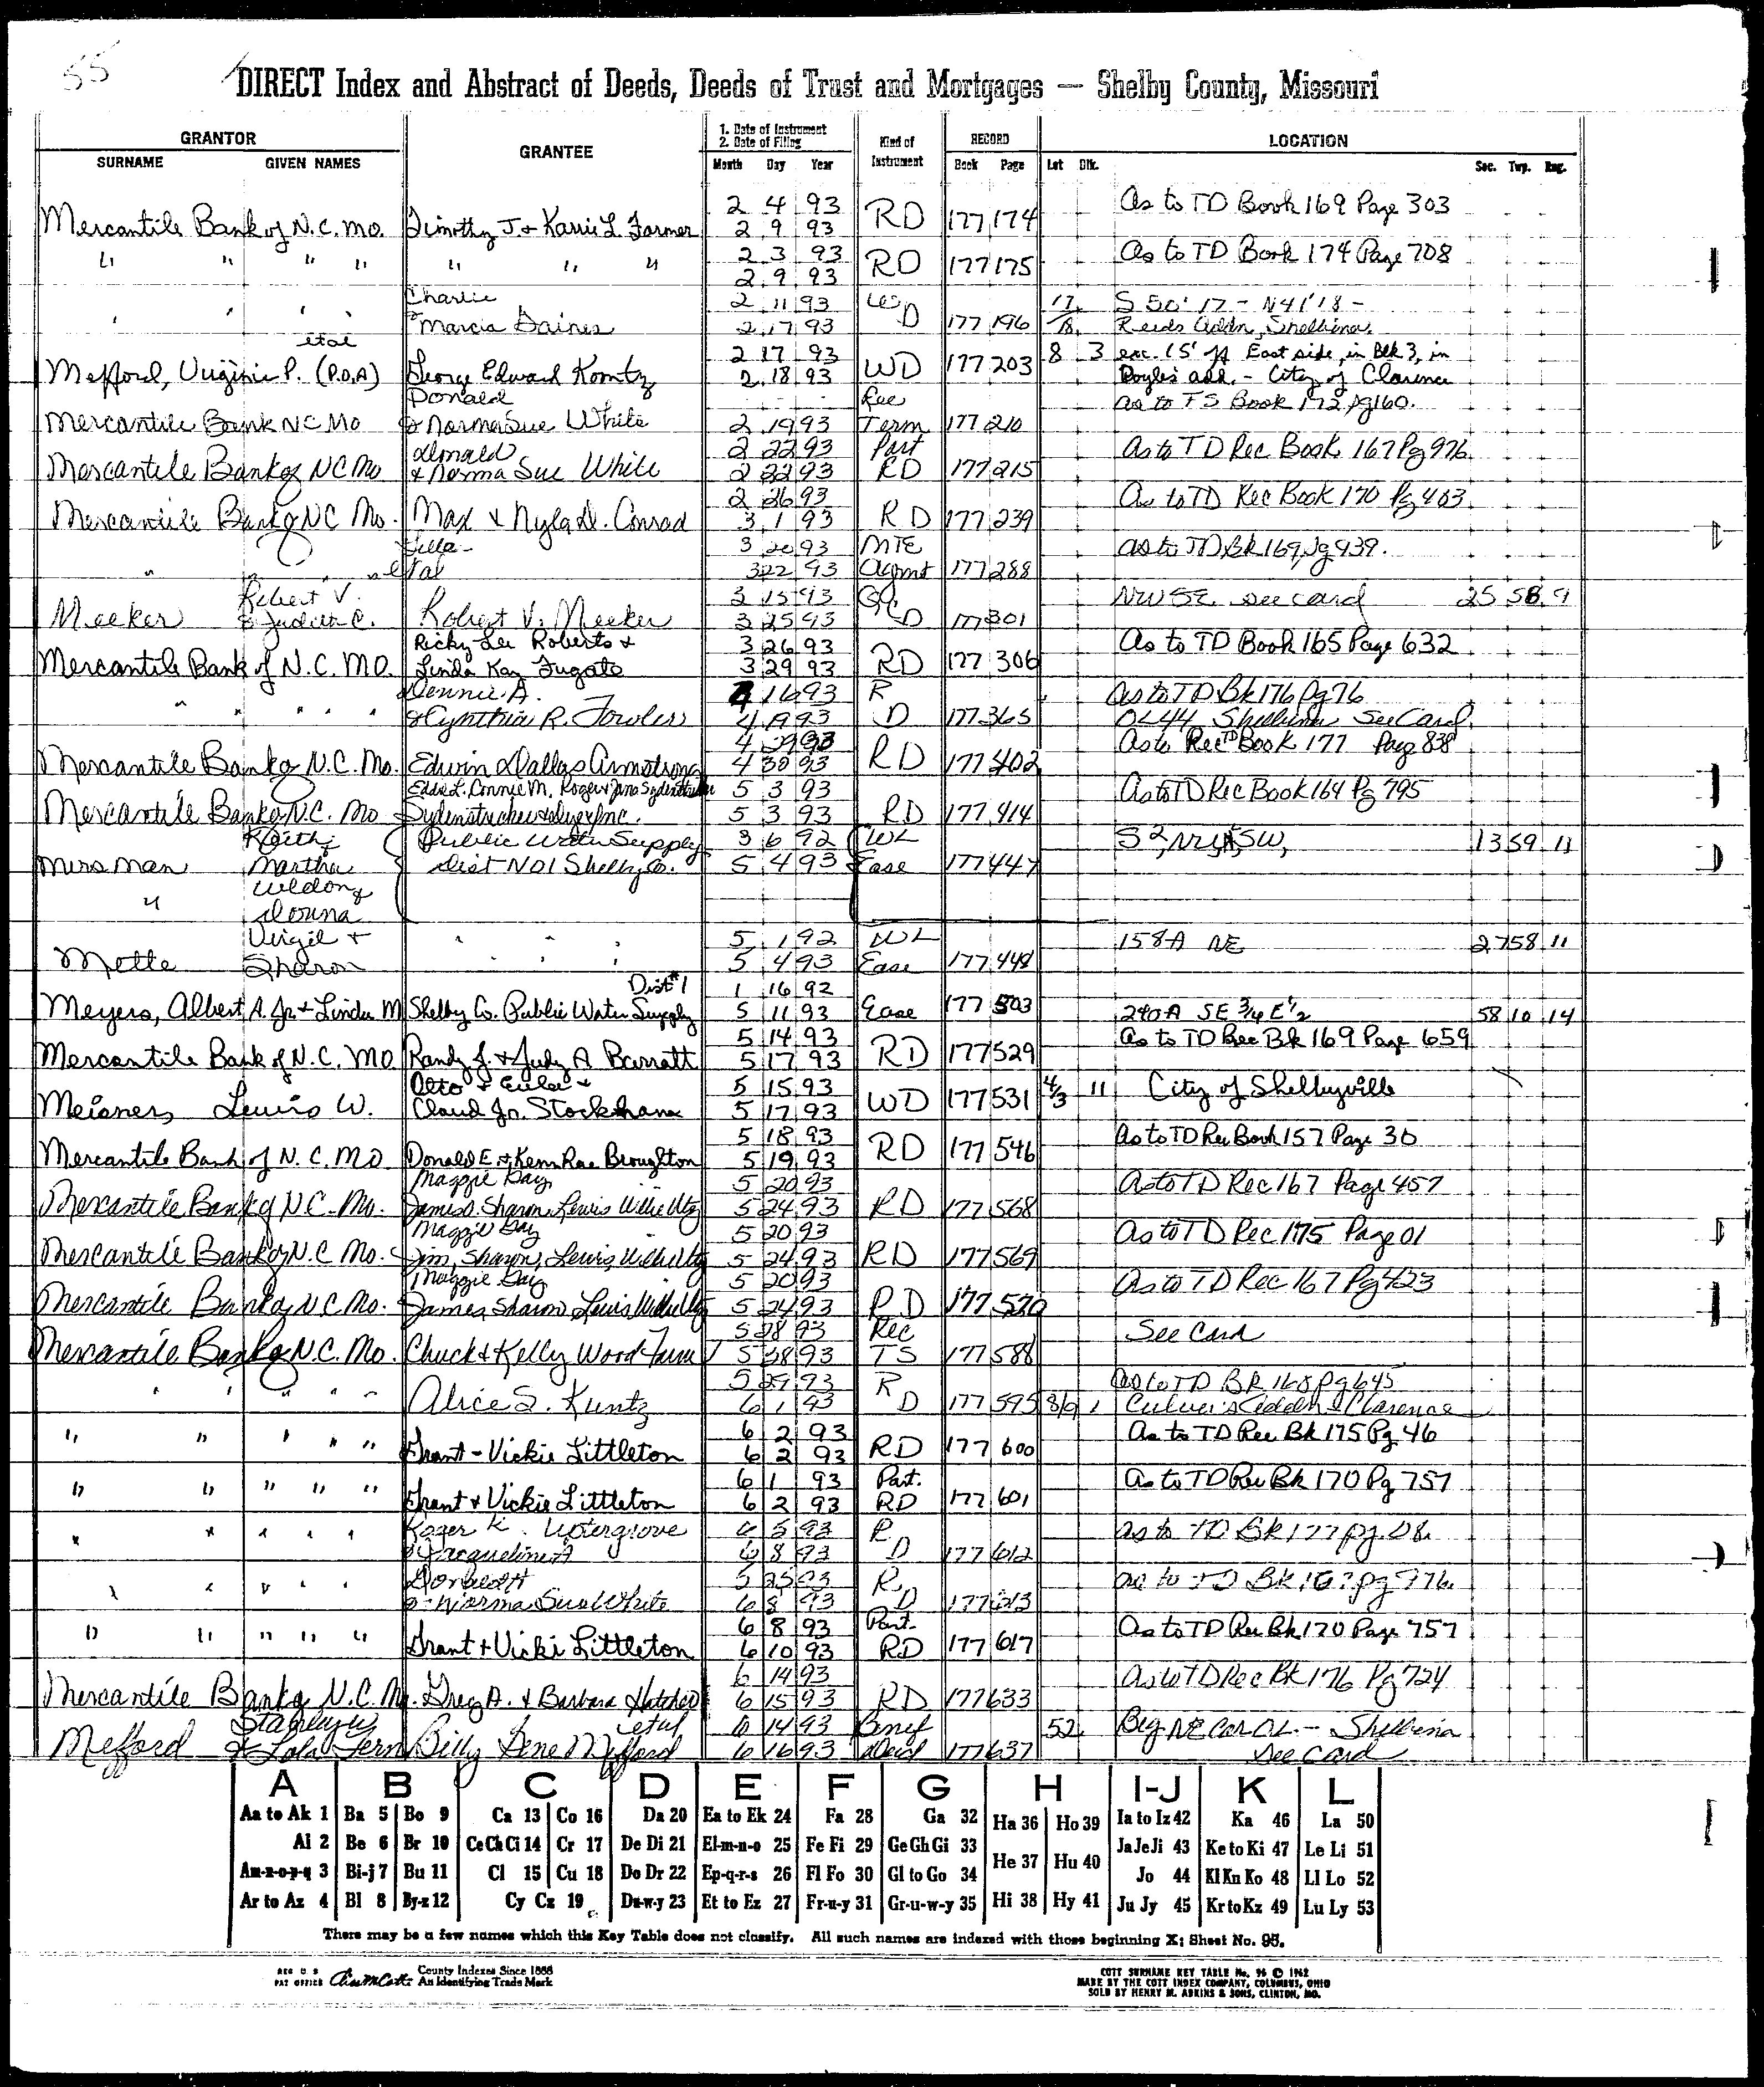 55
DIRECT Index and Abstract of Deeds, Deeds of Trust and Mortgages — Shelby County, Missouri
GRANTOR GRANTEE 1. Date of Instrument 2. Date of Filing Kind of Instrument RECORD LOCATION
SURNAME GIVEN NAMES Month Day Year Book Page Lot Blk. Sec. Twp. Rng.
2 4 93 As to TD Book 169 Page 303
Mercantile Bank of N.C. Mo. Timothy J. & Karrie L. Farmer 2 9 93 RD 177 174
2 3 93 As to TD Book 174 Page 708
" " " " " " " 2 9 93 RD 177 175
Charlie 2 11 93 17 S 50' 17 - N41' 18 -
& Marcia Gaines 2 17 93 D 177 196 18 Reids Addn, Shelbina
etal 2 17 93 8 3 exc. 15' off East side, in Blk 3, in
Mefford, Virginia P. (P.O.A) George Edward Koontz 2 18 93 WD 177 203 Doyles add. - City of Clarence
Donald Rec as to TS Book 172 pg 160.
Mercantile Bank NC Mo & Norma Sue White 2 19 93 Term 177 210
Donald 2 22 93 Part As to TD Rec Book 167 Pg 976
Mercantile Bank of NC Mo & Norma Sue White 2 22 93 RD 177 215
2 26 93 As to TD Rec Book 170 Pg 403
Mercantile Bank of NC Mo. Max & Nyla D. Conrad 3 1 93 RD 177 239
3 20 93 MTE as to TD Bk 169 pg 939.
" " " " etal 3 22 93 Agmt 177 288
Robert V. 3 15 93 NWSE see card 25 58 9
Meeker & Judith C. Robert V. Meeker 3 25 93 QCD 177 301
Ricky Lee Roberts & 3 26 93 As to TD Book 165 Page 632
Mercantile Bank of N.C. MO. Linda Kay Fugate 3 29 93 RD 177 306
Dennie A. 4 16 93 R As to TD Bk 176 Pg 76
" " " " " & Cynthia R. Fowler 4 19 93 D 177 365 OL 44 Shelbina See Card
4 29 93 As to Rec TD Book 177 Page 838
Mercantile Bank of N.C. Mo. Edwin & Dallas Armstrong 4 30 93 RD 177 402
Eddie L. Connie M. Roger & Jana Sydenstricker 5 3 93 As to TD Rec Book 164 Pg 795
Mercantile Bank of N.C. Mo 5 3 93 RD 177 414
Keith & Public Water Supply 3 6 92 WL 13 59 11
Mersman Martha Dist No 1 Shelby Co. 5 4 93 Ease 177 447
Weldon &
" Donna
Virgil & " " " 5 1 92 WL 158A NE 27 58 11
Mette Sharon " " " 5 4 93 Ease 177 448
Dist #1 1 16 92
Meyers, Albert A. Jr. & Linda M Shelby Co. Public Water Supply 5 11 93 Ease 177 503 240A SE 3/4 E 1/2 58 10 14
5 14 93 As to TD Rec Bk 169 Page 659
Mercantile Bank of N.C. MO Randy J. & Judy A Barratt 5 17 93 RD 177 529
Alto & Eula & 5 15 93 4/3 11 City of Shelbyville
Meisner, Lewis W. Claud Jr. Stockham 5 17 93 WD 177 531
5 18 93 As to TD Rec Book 157 Page 30
Mercantile Bank of N.C. MO Donald E. & Kenna Rae Broughton 5 19 93 RD 177 546
Maggie Day 5 20 93 As to TD Rec 167 Page 457
Mercantile Bank of N.C. Mo. James O. Sharon, Lewis Willie Utz 5 24 93 RD 177 568
Maggie Day 5 20 93 As to TD Rec 175 Page 01
Mercantile Bank of N.C Mo. Jim, Sharon, Lewis, Willie Utz 5 24 93 RD 177 569
Maggie Day 5 20 93 As to TD Rec 167 Pg 423
Mercantile Bank of N.C Mo. James, Sharon, Lewis Willie Utz 5 24 93 RD 177 570
5 28 93 Rec See Card
Mercantile Bank of N.C. Mo. Chuck & Kelly Wood Farm 5 28 93 TS 177 588
5 29 93 R as to TD BK 168 pg 645
" " " " " Alice S. Kuntz 6 1 93 D 177 595 8/9 1 Culver's Addn Clarence
6 2 93 As to TD Rec Bk 175 Pg 46
" " " " " Grant - Vickie Littleton 6 2 93 RD 177 600
6 1 93 Part. As to TD Rec Bk 170 Pg 757
" " " " " Grant & Vickie Littleton 6 2 93 RD 177 601
Roger K. Utergrove 6 5 93 R as to TD Bk 177 pg. 08
" " " " " & Jacqueline A 6 8 93 D 177 612
Donald H 5 25 93 R as to TD Bk 167 pg 976
" " " " " & Norma Sue White 6 8 93 D 177 613
6 8 93 Part. As to TD Rec Bk 170 Page 757
" " " " " Grant & Vicki Littleton 6 10 93 RD 177 617
6 14 93 As to TD Rec Bk 176 Pg 724
Mercantile Bank of N.C. Mo. Greg A. & Barbara Hatcher 6 15 93 RD 177 633
etal 6 14 93 Benef 52 Beg NE cor OL. - Shelbina
Mefford & Lola Fern Billy Gene Mefford 6 16 93 Deed 177 637 See Card
A B C D E F G H I-J K L
Aa to Ak 1 Ba 5 Bo 9 Ca 13 Co 16 Da 20 Ea to Ek 24 Fa 28 Ga 32 Ha 36 Ho 39 Ia to Iz 42 Ka 46 La 50
Al 2 Be 6 Br 10 CeChCi 14 Cr 17 De Di 21 El-m-n-o 25 Fe Fi 29 GeGhGi 33 He 37 Hu 40 JaJeJi 43 Ke to Ki 47 Le Li 51
Am-n-o-p-q 3 Bi-j 7 Bu 11 Cl 15 Cu 18 Do Dr 22 Ep-q-r-s 26 Fl Fo 30 Gl to Go 34 Jo 44 Kl Kn Ko 48 Ll Lo 52
Ar to Az 4 Bl 8 By-z 12 Cy Cz 19 Du-w-y 23 Et to Ez 27 Fr-u-y 31 Gr-u-w-y 35 Hi 38 Hy 41 Ju Jy 45 Kr to Kz 49 Lu Ly 53
There may be a few names which this Key Table does not classify. All such names are indexed with those beginning X; Sheet No. 95.
REG U S PAT OFFICE County Indexes Since 1888 An Identifying Trade Mark
COTT SURNAME KEY TABLE No. 96 © 1962
MADE BY THE COTT INDEX COMPANY, COLUMBUS, OHIO
SOLD BY HENRY M. ADKINS & SONS, CLINTON, MO.